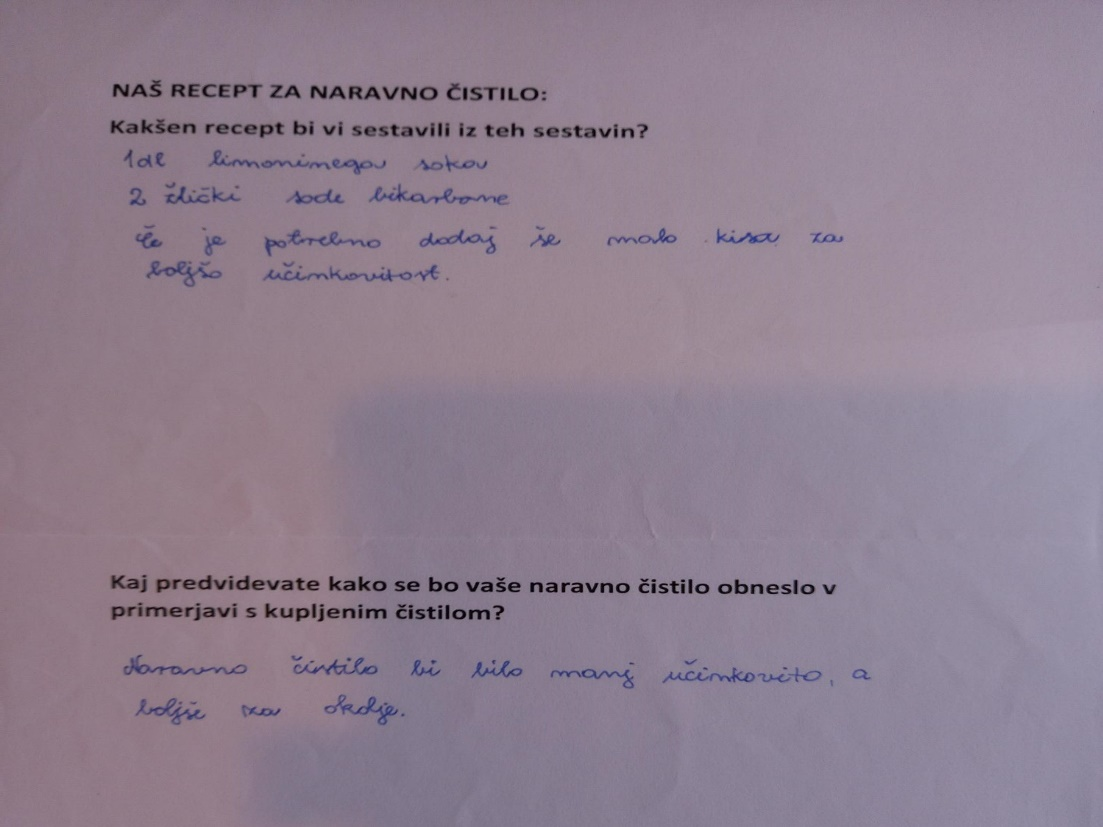 NAŠ RECEPT ZA NARAVNO ČISTILO:
Kakšen recept bi vi sestavili iz teh sestavin?
1dl limoninega soka
2 žlički sode bikarbone
Če je potrebno dodaj še malo kisa za
boljšo učinkovitost.
Kaj predvidevate kako se bo vaše naravno čistilo obneslo v
primerjavi s kupljenim čistilom?
Naravno čistilo bi bilo manj učinkovito, a
boljše za okolje.